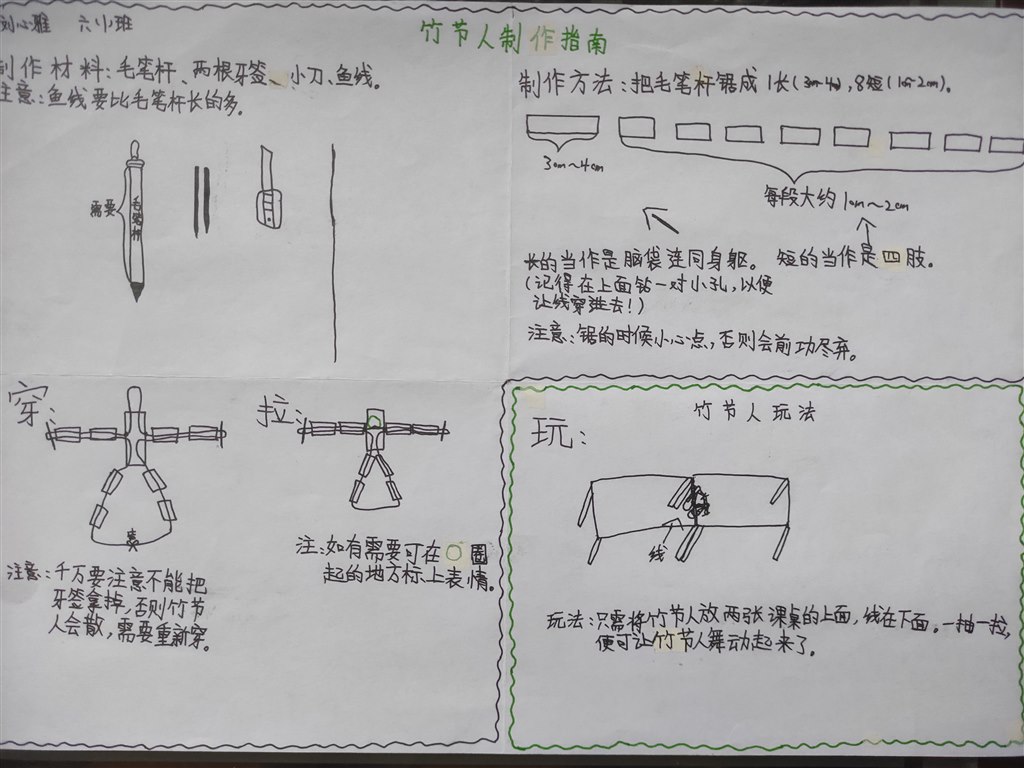 刘心雅 六(1)班
竹节人制作指南
制作材料:毛笔杆、两根牙签、小刀、鱼线。
注意:鱼线要比毛笔杆长的多。
需要
毛笔杆
制作方法:把毛笔杆锯成1长(3cm-4cm),8短(1cm-2cm)。
3cm~4cm
每段大约1cm~2cm
长的当作是脑袋连同身躯。 短的当作是四肢。
(记得在上面钻一对小孔,以便
让线穿进去!)
注意:锯的时候小心点,否则会前功尽弃。
穿:
注意:千万要注意不能把
牙签拿掉,否则竹节
人会散,需要重新穿。
拉:
注:如有需要可在○圈
起的地方标上表情。
竹节人玩法
玩:
线
玩法:只需将竹节人放两张课桌的上面,线在下面。一抽一拉,
便可让竹节人舞动起来了。